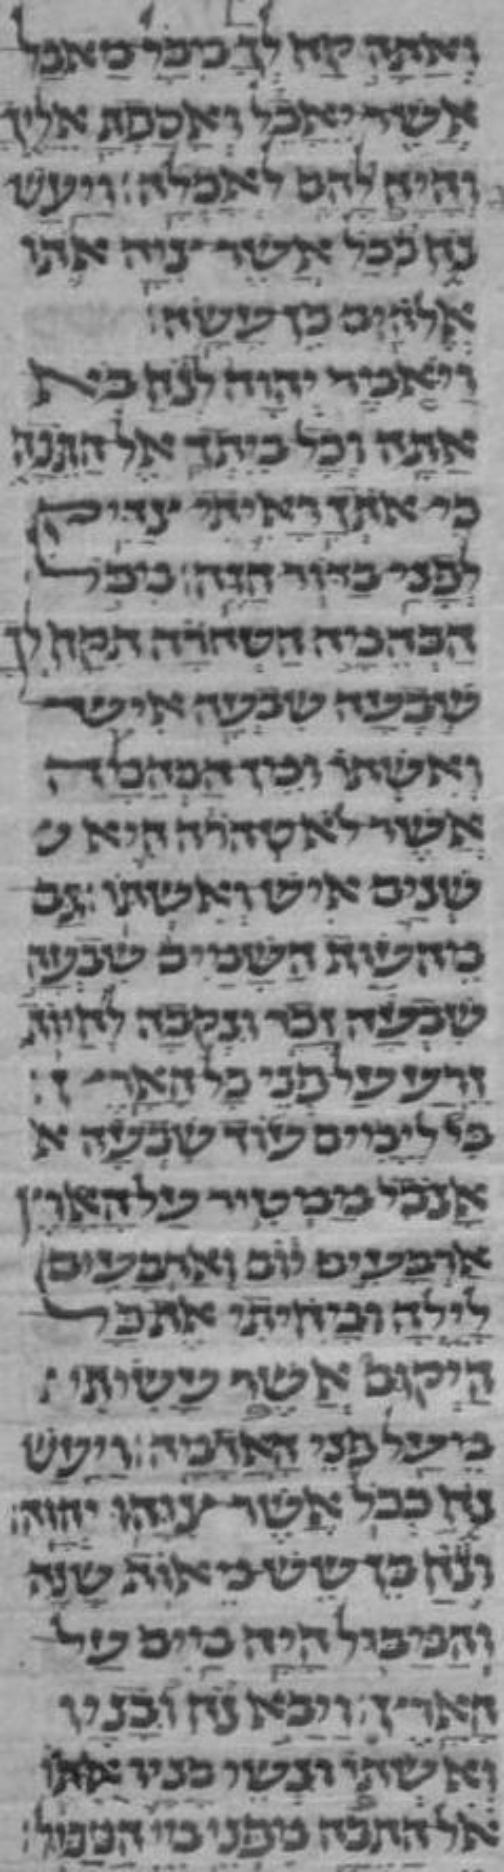 ואתה קח לך מכל מאכל
אשר יאכל ואספת אליך
והיה להם לאכלה׃ ויעש
נח ככל אשר צוה אתו
אלהים כן עשה׃
ויאמר יהוה לנח בא
אתה וכל ביתך אל התבה
כי אתך ראיתי צדיק
לפני בדור הזה׃ מכל
הבהמה הטהורה תקח לך
שבעה שבעה איש
ואשתו ומן הבהמה
אשר לא טהרה היא ש
שנים איש ואשתו׃ גם
מהעוף השמים שבעה
שבעה זכר ונקבה לחיות
זרע על פני כל הארץ׃
כי לימים עוד שבעה א
אנכי ממטיר על הארץ
ארבעים יום וארבעים
לילה ומחיתי את כל
היקום אשר עשיתי
מעל פני האדמה׃ ויעש
נח ככל אשר צוהו יהוה׃
ונח בן שש מאות שנה
והמבול היה מים על
הארץ׃ ויבא נח ובניו
ואשתו ונשי בניו אתו
אל התבה מפני מי המבול׃